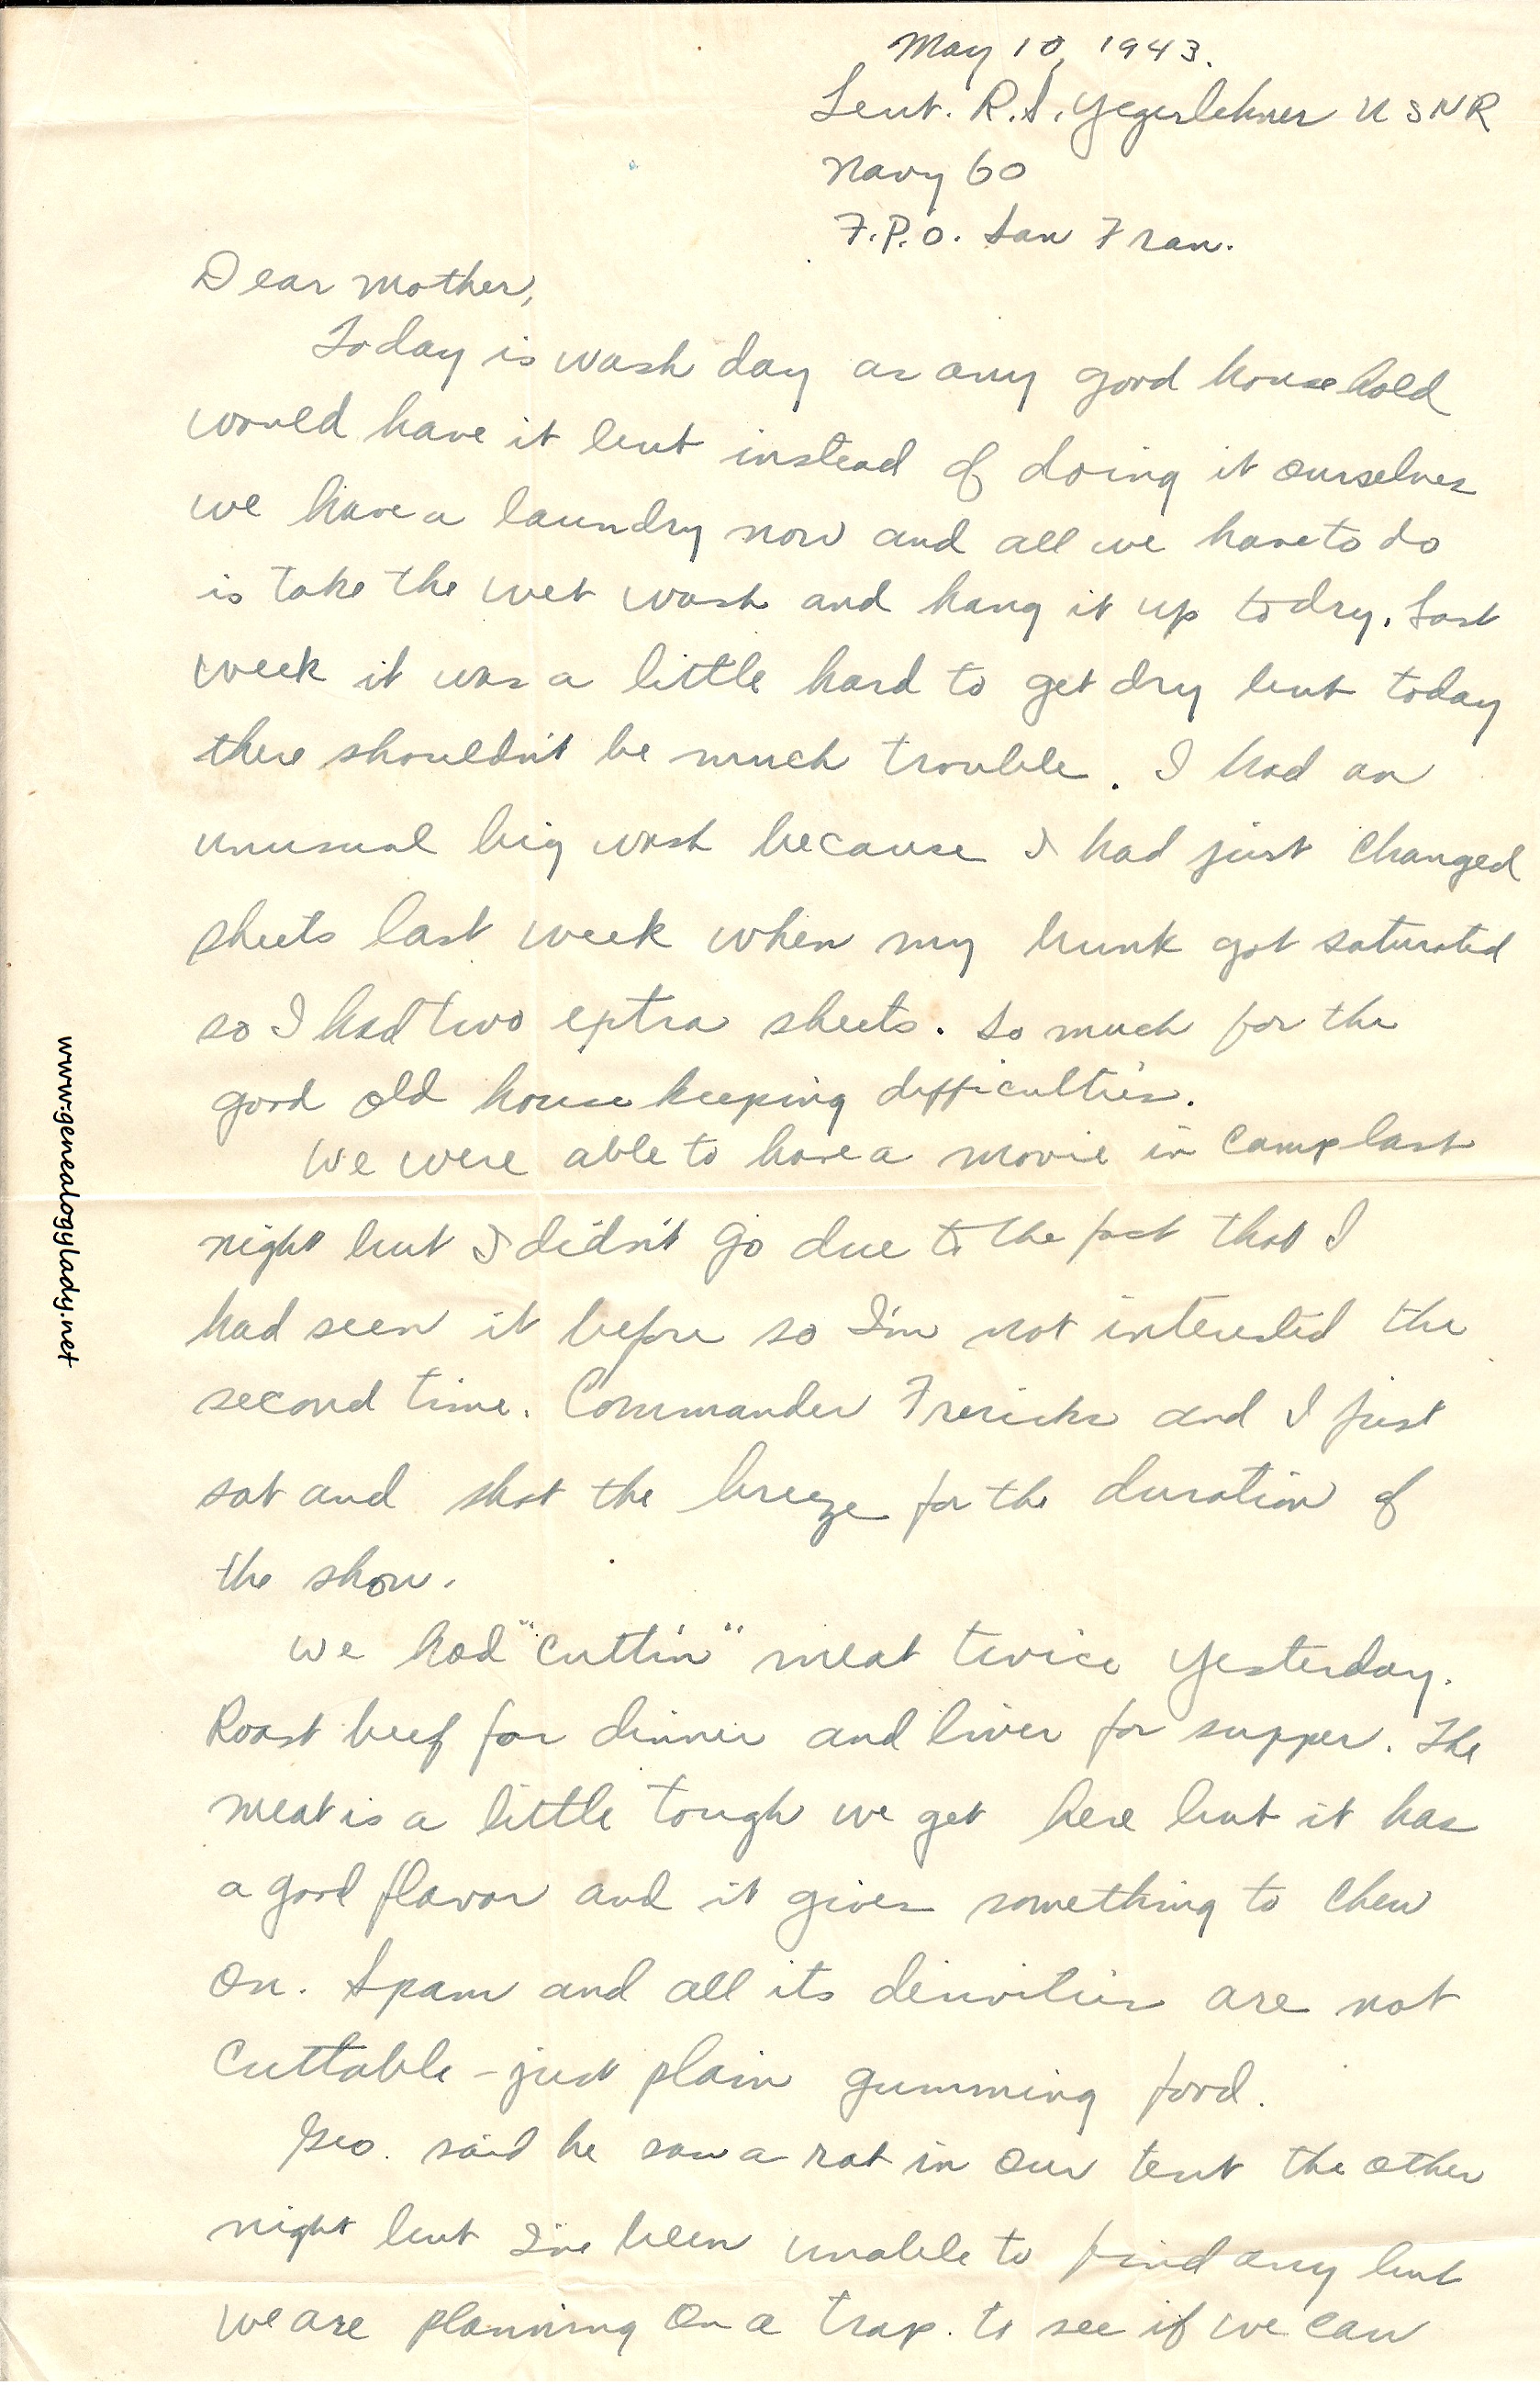 May 10, 1943.
Leut. R.S. Yegerlehner USNR
Navy 60
F.P.O. San Fran.
Dear Mother,
Today is wash day as any good household
would have it but instead of doing it ourselves
we have a laundry now and all we have to do
is take the wet wash and hang it up to dry. Last
week it was a little hard to get dry but today
there shouldn't be much trouble. I had an
unusual big wash because I had just changed
sheets last week when my bunk got saturated
so I had two extra sheets. So much for the
good old house keeping difficulties.
We were able to have a movie in camp last
night but I didn't go due to the fact that I
had seen it before so I'm not interested the
second time. Commander Frerichs and I just
sat and shot the breeze for the duration of
the show.
We had "cuttin" meat twice yesterday.
Roast beef for dinner and liver for supper. The
meat is a little tough we get here but it has
a good flavor and it gives something to chew
on. Spam and all its are not
cuttable - just plain gumming food.
Geo. said he saw a rat in our tent the other
night but I've been unable to find any but
we are planning on a trap. to see if we can
www.genealogylady.net